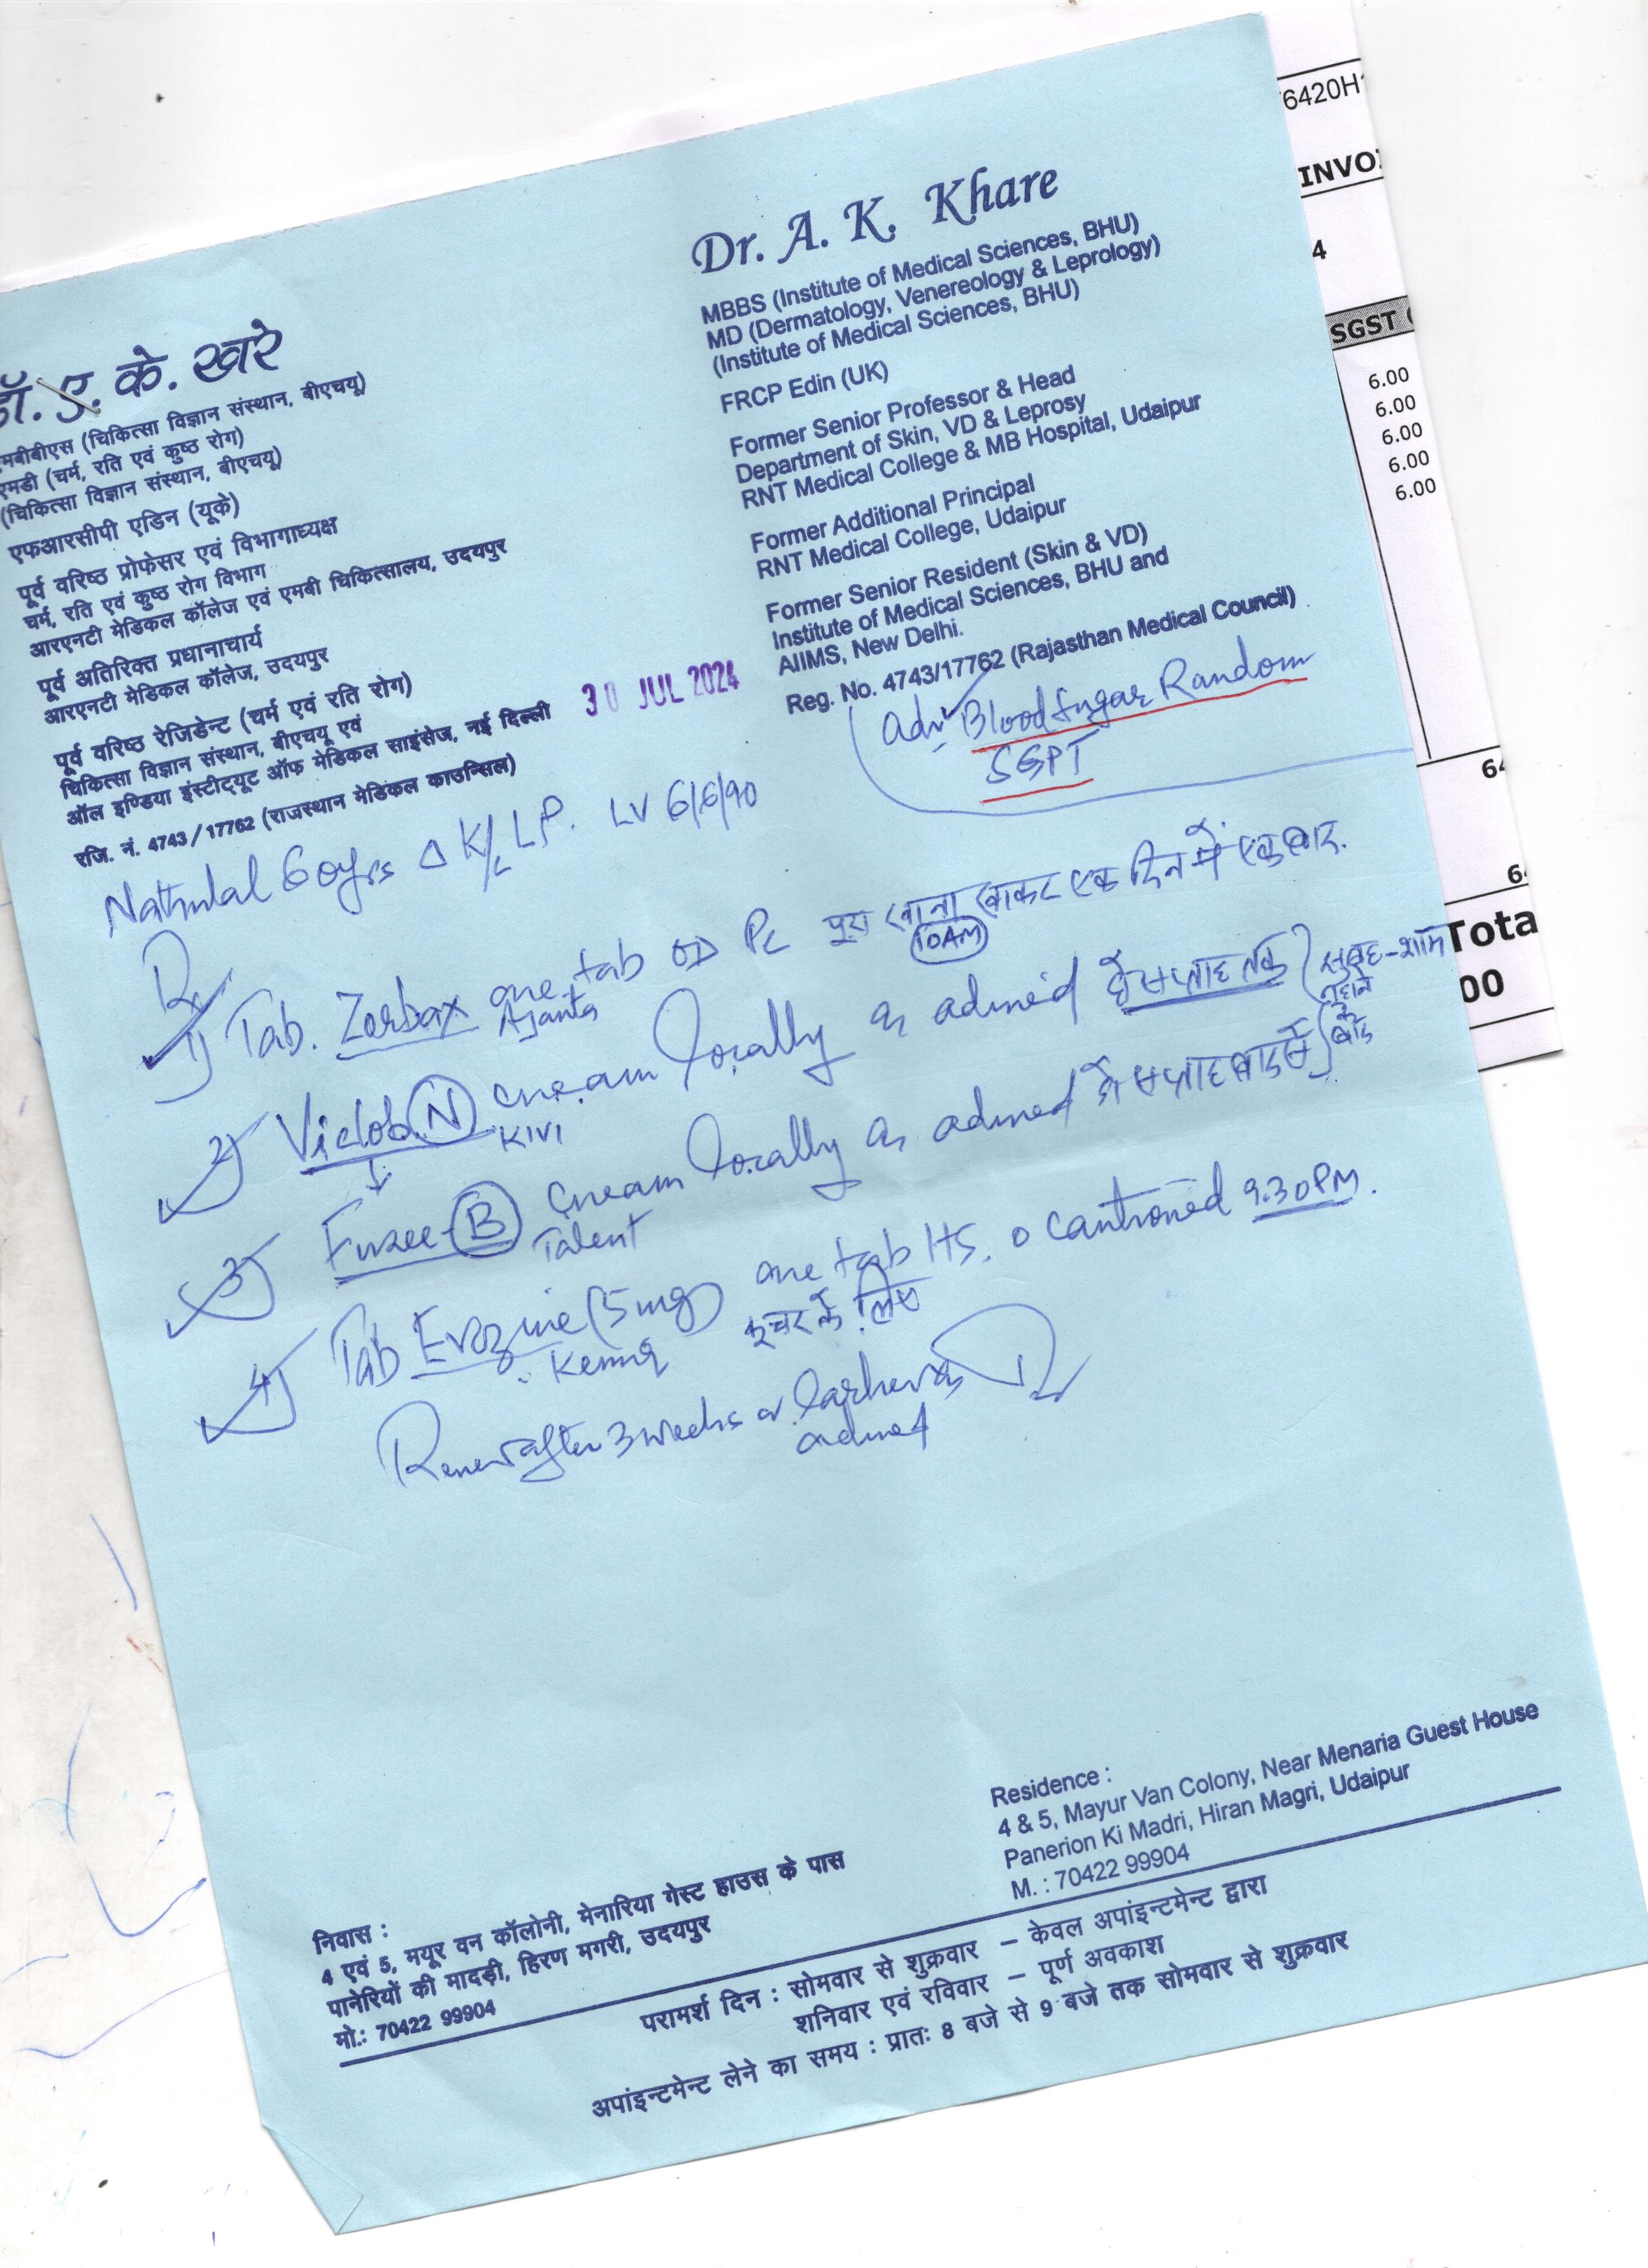 Dr. A. K. Khare
MBBS (Institute of Medical Sciences, BHU)
MD (Dermatology, Venereology & Leprology)
(Institute of Medical Sciences, BHU)
FRCP Edin (UK)
Former Senior Professor & Head
Department of Skin, VD & Leprosy
RNT Medical College & MB Hospital, Udaipur
Former Additional Principal
RNT Medical College, Udaipur
Former Senior Resident (Skin & VD)
Institute of Medical Sciences, BHU and
AIIMS, New Delhi.
Reg. No. 4743/17762 (Rajasthan Medical Council)
ए. के. खरे
एमबीबीएस (चिकित्सा विज्ञान संस्थान, बीएचयू)
एमडी (चर्म, रति एवं कुष्ठ रोग)
(चिकित्सा विज्ञान संस्थान, बीएचयू)
एफआरसीपी एडिन (यूके)
पूर्व वरिष्ठ प्रोफेसर एवं विभागाध्यक्ष
चर्म, रति एवं कुष्ठ रोग विभाग
आरएनटी मेडिकल कॉलेज एवं एमबी चिकित्सालय, उदयपुर
पूर्व अतिरिक्त प्रधानाचार्य
आरएनटी मेडिकल कॉलेज, उदयपुर
पूर्व वरिष्ठ रेजिडेन्ट (चर्म एवं रति रोग)
चिकित्सा विज्ञान संस्थान, बीएचयू एवं
ऑल इण्डिया इंस्टीट्यूट ऑफ मेडिकल साइंसेज, नई दिल्ली
रजि. नं. 4743/17762 (राजस्थान मेडिकल काउन्सिल)
30 JUL 2024
Adv Blood Sugar Random
SGPT
Nathulal 60yrs Δ LP. LV 6/6/90
Rx
1) Tab. Zorbax one tab OD PC पूरा खाना खाकर एक दिन में एक बार.
Ajanta 10AM
2) Viclob N cream locally as advised दो सप्ताह तक सुबह-शाम
KIVI नहाने के बाद
3) Fuzee B cream locally as advised दो सप्ताह बाद से
Talent
4) Tab Evozine (5mg) one tab HS. cautioned 9.30PM.
के लिए
after 3 weeks or advised
Residence :
4 & 5, Mayur Van Colony, Near Menaria Guest House
Panerion Ki Madri, Hiran Magri, Udaipur
M. : 70422 99904
निवास :
4 एवं 5, मयूर वन कॉलोनी, मेनारिया गेस्ट हाउस के पास
पानेरियों की मादड़ी, हिरण मगरी, उदयपुर
मो.: 70422 99904
परामर्श दिन : सोमवार से शुक्रवार – केवल अपांइन्टमेन्ट द्वारा
शनिवार एवं रविवार – पूर्ण अवकाश
अपांइन्टमेन्ट लेने का समय : प्रातः 8 बजे से 9 बजे तक सोमवार से शुक्रवार
6420H
INVO
4
SGST
6.00
6.00
6.00
6.00
6.00
64
6
Tota
00